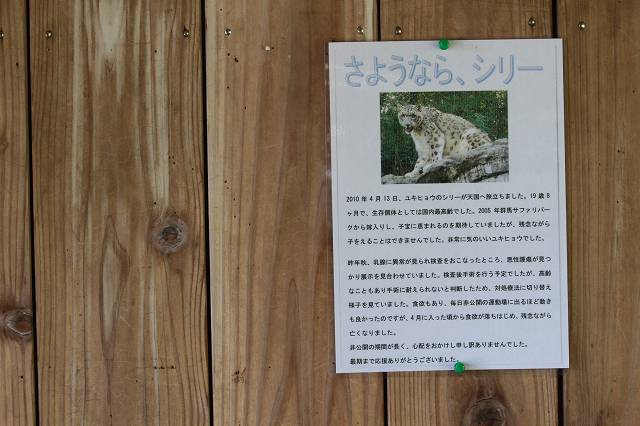 さようなら、シリー
2010 年 4 月 13 日、ユキヒョウのシリーが天国へ旅立ちました。19 歳 8
ヶ月で、生存個体としては国内最高齢でした。2005 年群馬サファリパー
クから嫁入りし、子宝に恵まれるのを期待していましたが、残念ながら
子をえることはできませんでした。非常に気のいいユキヒョウでした。
昨年秋、乳腺に異常が見られ検査をおこなったところ、悪性腫瘍が見つ
かり展示を見合わせていました。検査後手術を行う予定でしたが、高齢
なこともあり手術に耐えられないと判断したため、対処療法に切り替え
様子を見ていました。食欲もあり、毎日非公開の運動場に出るほど動き
も良かったのですが、4 月に入った頃から食欲が落ちはじめ、残念ながら
亡くなりました。
非公開の期間が長く、心配をおかけし申し訳ありませんでした。
最期まで応援ありがとうございました。